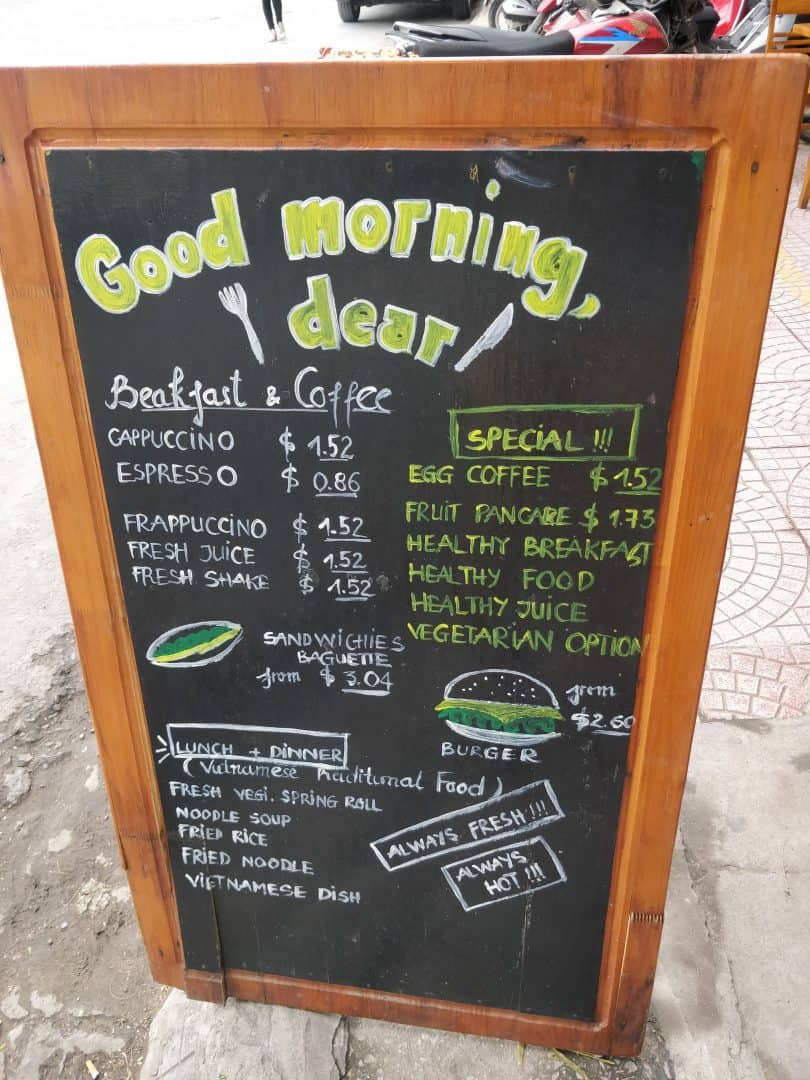 Good morning,
dear
Beakfast & Coffee
CAPPUCCINO $ 1.52
ESPRESSO $ 0.86
FRAPPUCCINO $ 1.52
FRESH JUICE $ 1.52
FRESH SHAKE $ 1.52
SPECIAL !!!
EGG COFFEE $ 1.52
FRUIT PANCAKE $ 1.73
HEALTHY BREAKFAST
HEALTHY FOOD
HEALTHY JUICE
VEGETARIAN OPTION
SANDWICHIES
BAGUETTE
from $ 3.04
from
$2.60
BURGER
LUNCH + DINNER
(Vietnamese Traditional Food)
FRESH VEGI. SPRING ROLL
NOODLE SOUP
FRIED RICE
FRIED NOODLE
VIETNAMESE DISH
ALWAYS FRESH !!!
ALWAYS
HOT !!!